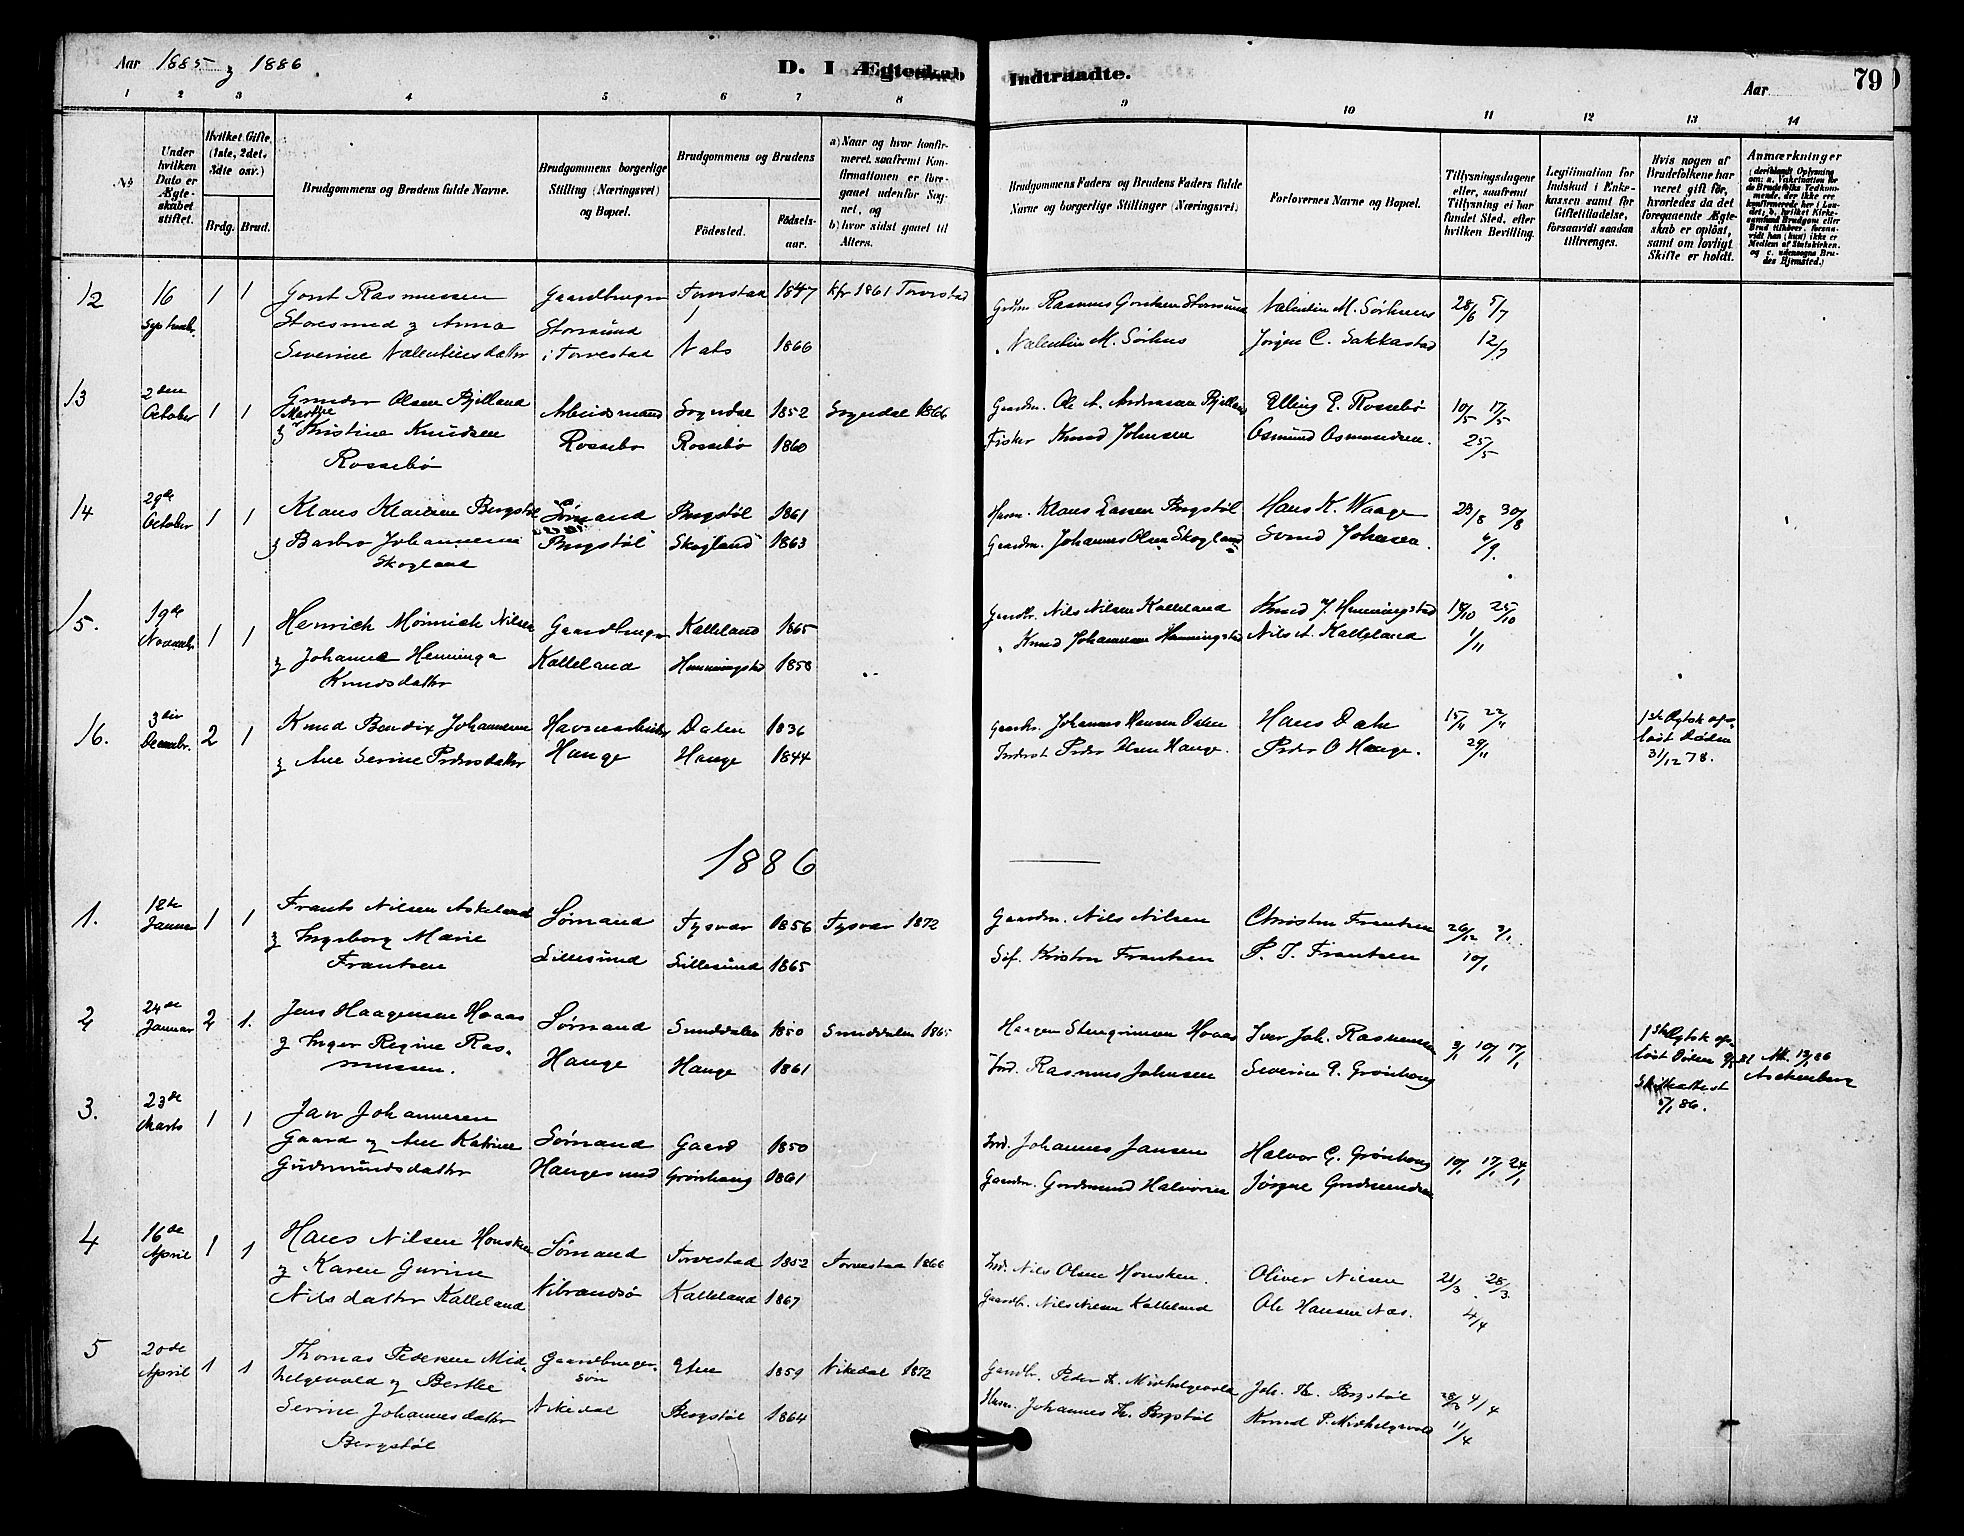 Aar 1885 og 1886
D. I Ægteskab Indtraadte.
Aar
79
1 2 3 4 5 6 7 8 9 10 11 12 13 14
No
Under hvilken Dato er Ægteskabet stiftet.
Hvilket Gifte, (1ste, 2det, 3die osv.)
Brdg. Brud.
Brudgommens og Brudens fulde Navne.
Brudgommens borgerlige Stilling (Næringsvei) og Bopæl.
Brudgommens og Brudens
Fødested.
Fødselsaar.
a) Naar og hvor konfirmeret, saafremt Konfirmationen er foregaaet udenfor Sognet, og
b) hvor sidst gaaet til Alters.
Brudgommens Faders og Brudens Faders fulde Navne og borgerlige Stillinger (Næringsvei)
Forlovernes Navne og Bopæl.
Tillysningsdagene eller, saafremt Tillysning ei har fundet Sted, efter hvilken Bevilling.
Legitimation for Indskud i Enkekassen samt for Giftetilladelse, forsaavidt saadan tiltrænges.
Hvis nogen af Brudefolkene har været gift før, hvorledes da det foregaaende Ægteskab er opløst, samt om lovligt Skifte er holdt.
Anmærkninger
12 16 Septembr. 1 1 Gont Rasmussen Storesund og Anna Severine Valentinsdatter
Gaardbruger Storesund i Torvestad
Torvestad 1847 kfr 1861 Torvestad
Vats 1866
Rasmus Gontsen Storesund
Valentin M. Sørhus
Valentin M. Sørhuus
Jørgen C. Sakkastad
28/6 5/7
12/7
13 2den October 1 1 Olsen Bjelland
og Marthe Kristine Knudsen
Rossebø
Arbeidsmand Rossebø
Sogndal 1852 Sogndal 1866
Rossebø 1860
Gaardm. Ole A. Andreasen Bjelland
Fisker Knud Johnsen
Elling E. Rossebø
Osmund Osmundsen.
10/5 17/5
25/5
14 29de October 1 1 Klaus Klausen Bergstøl
og Barbro Johannesen
Skogland
Sømand Bergstøl
Bergstøl 1861
Skogland 1863
Husm. Klaus Larsen Bergstøl
Gaardm. Johannes Olsen Skogland
Hans K. Waage
Svend Johnsen.
23/8 30/8
6/9.
15. 19de Novembr. 1 1 Henrich Mønnich Nilsen
og Johanne Henninga
Knudsdatter
Gaardbruger Kalleland
Kalleland 1865
Henningstad 1858
Gaardbr. Nils Nilsen Kalleland
Knud Johannesen Henningstad
Knud J. Henningstad
Nils A. Kalleland
18/10 25/10
1/11
16. 3die Decembr. 2 1 Knud Bendix Johannesen
og Ane Serine Pedersdatter
Havnearbeider Hauge
Dalen 1836
Hauge 1844
Gaardbr. Johannes Hansen Dalen
Inderst Peder Olsen Hauge.
Hans Dale
Peder O Hauge.
15/11 22/11
29/11
1ste Ægtsk opløst v Døden
31/12 78.
1886
1. 12te Januar 1 1 Frants Nilsen Askeland
og Ingeborg Marie
Frantsen
Sømand Lillesund
Tysvær 1856 Tysvær 1872
Lillesund 1865
Gaardm. Nils Nilsen
Sef. Kristen Frantsen
Christen Frantsen
P. T. Frantsen
26/12 3/1.
10/1
2 24de Januar 2 1. Jens Haagensen Haaas
og Inger Regine Rasmussen.
Sømand Hauge
Sunddalen 1850 Sunddalen 1865
Hauge 1861
Haagen Stengrimsen Haaas
Ind. Rasmus Johnsen
Iver Joh. Rasmussen
Severin G. Grønhaug
3/1 10/1 17/1
1ste Ægtsk opløst v Døden
Skifteattest
5/1 86.
3. 23de Marts 1 1 Jan Johannesen
Gaard og Ane Katrine
Gudmundsdatter
Sømand Haugesund
Gaard 1850
Grønhaug 1861
Ind. Johannes Jansen
Gaardm. Gudmund Halvorsen
Halvor G. Grønhaug
Jørgen Gudmundsen
10/1 17/1 24/1
4 16de April 1 1 Hans Nilsen Housken
og Karen Gurine
Nilsdatter Kalleland
Sømand Vibrandsø
Torvestad 1852 Torvestad 1866
Kalleland 1867
Ind. Nils Olsen Housken.
Gaardbr. Nils Nilsen Kalleland
Oliver Nilsen
Ole Hansen Næs.
21/3 28/3.
4/4
5 20de April 1 1 Thomas Pedersen Midhelgevold og Berthe
Serine Johannesdatter
Bergstøl
Gaardbrugersøn Vikedal
Etne 1859 Vikedal 1872
Bergstøl 1864
Gaardbr. Peder T. Midhelgevold
Husm. Johannes Th. Bergstøl
Joh. Th. Bergstøl
Knud P. Midhelgevold
28/3 4/4
11/4